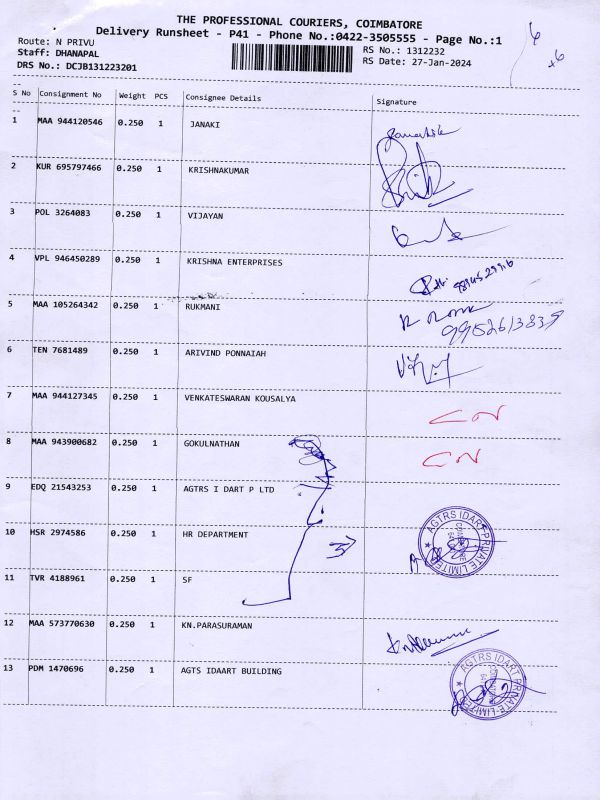 THE PROFESSIONAL COURIERS, COIMBATORE
Delivery Runsheet - P41 - Phone No.:0422-3505555 - Page No.:1
Route: N PRIVU
RS No.: 1312232
Staff: DHANAPAL
RS Date: 27-Jan-2024
DRS No.: DCJB131223201
S No Consignment No Weight PCS Consignee Details Signature
1 MAA 944120546 0.250 1 JANAKI
2 KUR 695797466 0.250 1 KRISHNAKUMAR
3 POL 3264083 0.250 1 VIJAYAN
4 VPL 946450289 0.250 1 KRISHNA ENTERPRISES
5 MAA 105264342 0.250 1 RUKMANI
9952613839
6 TEN 7681489 0.250 1 ARIVIND PONNAIAH
7 MAA 944127345 0.250 1 VENKATESWARAN KOUSALYA
CN
8 MAA 943900682 0.250 1 GOKULNATHAN
CN
9 EDQ 21543253 0.250 1 AGTRS I DART P LTD
10 HSR 2974586 0.250 1 HR DEPARTMENT
3
AGTRS IDART PRIVATE LIMITED
11 TVR 4188961 0.250 1 SF
12 MAA 573770630 0.250 1 KN.PARASURAMAN
13 PDM 1470696 0.250 1 AGTS IDAART BUILDING
AGTRS IDART PRIVATE LIMITED